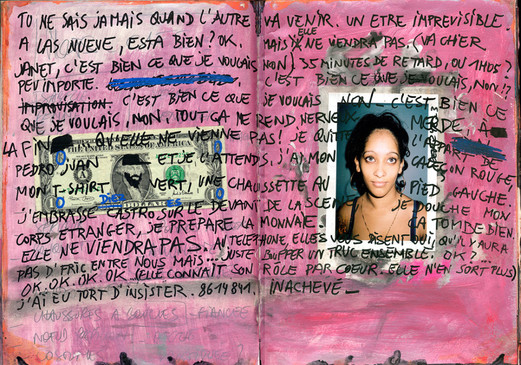 TU NE SAIS JAMAIS QUAND L'AUTRE VA VENIR. UN ETRE IMPREVISIBLE.
A LAS NUEVE, ESTA BIEN? OK. MAIS ELLE NE VIENDRA PAS. (VA CHIER
JANET, C'EST BIEN CE QUE JE VOULAIS NON) 35 MINUTES DE RETARD, OU 1H05?
PEU IMPORTE. C'EST BIEN CE QUE JE VOULAIS, NON!?
IMPROVISATION. C'EST BIEN CE QUE JE VOULAIS NON. C'EST BIEN CE
QUE JE VOULAIS, NON. TOUT ÇA ME REND NERVEUX. MERDE, A
LA FIN QU'ELLE NE VIENNE PAS! JE QUITTE L'APPART DE
PEDRO JUAN ET JE L'ATTENDS. J'AI MON CALEÇON ROUGE,
MON T-SHIRT VERT, UNE CHAUSSETTE AU PIED GAUCHE.
J'EMBRASSE CASTRO SUR LE DEVANT DE LA SCENE. JE DOUCHE MON
CORPS ETRANGER, JE PREPARE LA MONNAIE. ÇA TOMBE BIEN.
ELLE NE VIENDRA PAS. AU TELEPHONE, ELLES VOUS DISENT OUI, QU'IL Y AURA
PAS D'FRIC ENTRE NOUS MAIS... JUSTE BUFFER UN TRUC ENSEMBLE. OK?...
OK. OK. OK. OK (ELLE CONNAÎT SON RÔLE PAR COEUR. ELLE N'EN SORT PLUS)
J'AI EU TORT D'INSISTER. 8614841. INACHEVÉ_